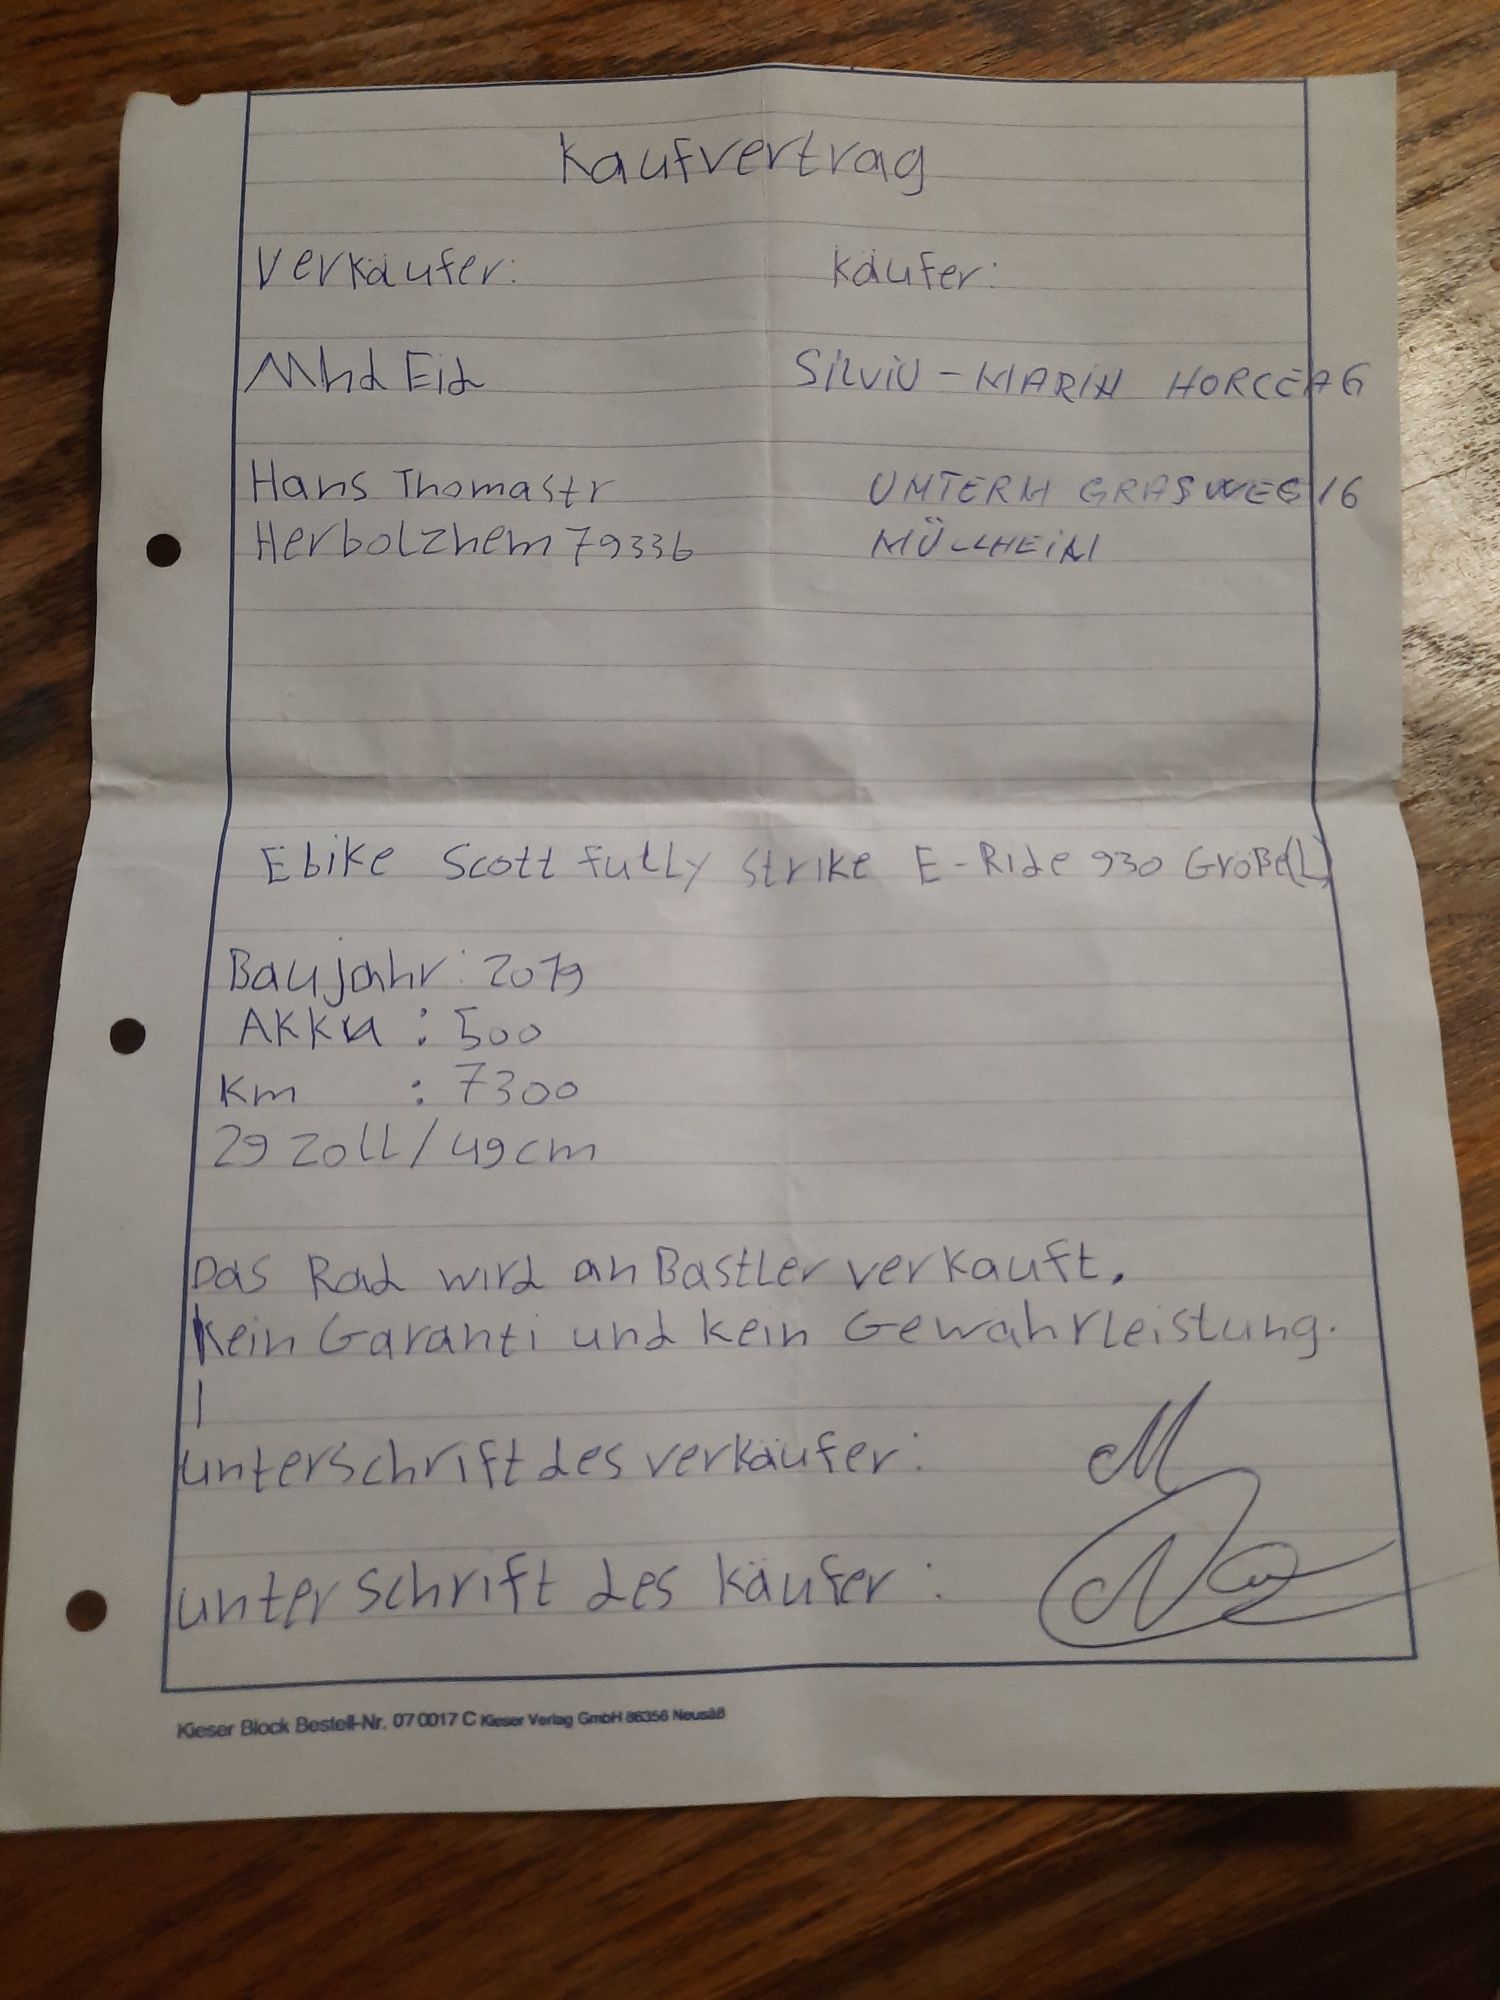 Kaufvertrag
Verkäufer: Käufer:
Mhd Eid SILVIU - MARIN HORCEAG
Hans Thomastr UNTERM GRASWEG 16
Herbolzhem 79336 MÜLLHEIM
Ebike Scott fully Strike E-Ride 930 Größe(L)
Baujahr: 2019
AKKu : 500
Km : 7300
29 Zoll / 49cm
Das Rad wird an Bastler verkauft.
Kein Garanti und kein Gewährleistung.
unterschrift des verkäufer:
unterschrift des Käufer:
Kieser Block Bestell-Nr. 07 0017 C Kieser Verlag GmbH 86356 Neusäß